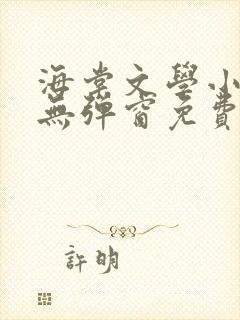 海棠文學小
無彈窗免費
許明